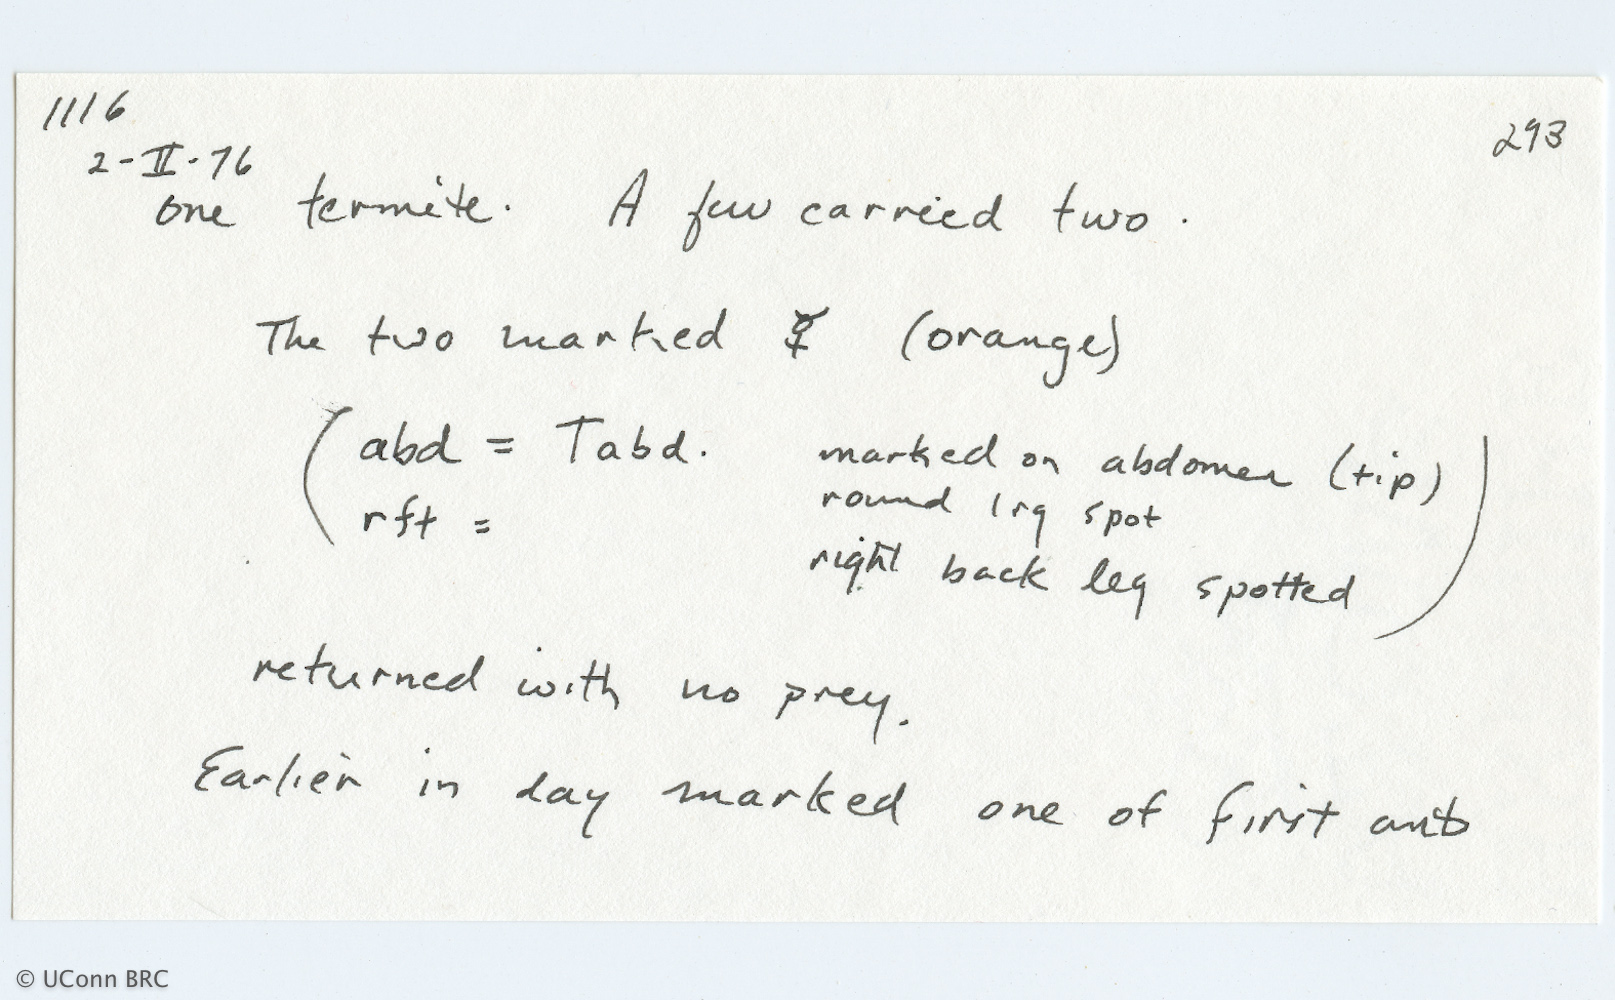 1116
293
2-II-76
one termite. A few carried two.
The two marked ☿ (orange)
(abd = Tabd. marked on abdomen (tip)
round lrg spot
rft =
right back leg spotted)
returned with no prey.
Earlier in day marked one of first ants
© UConn BRC